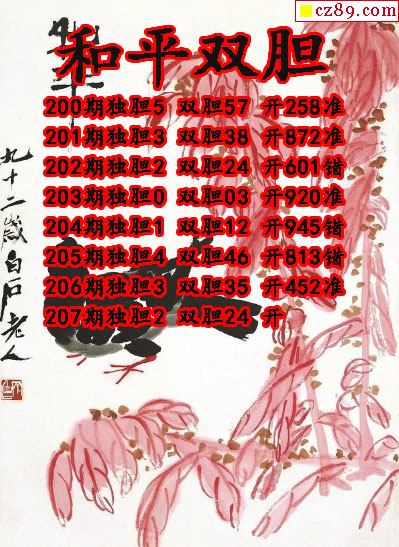 cz89.com
和平双胆
200期独胆5 双胆57 开258准
201期独胆3 双胆38 开872准
202期独胆2 双胆24 开601错
203期独胆0 双胆03 开920准
204期独胆1 双胆12 开945错
205期独胆4 双胆46 开813错
206期独胆3 双胆35 开452准
207期独胆2 双胆24 开
九十二岁白石老人